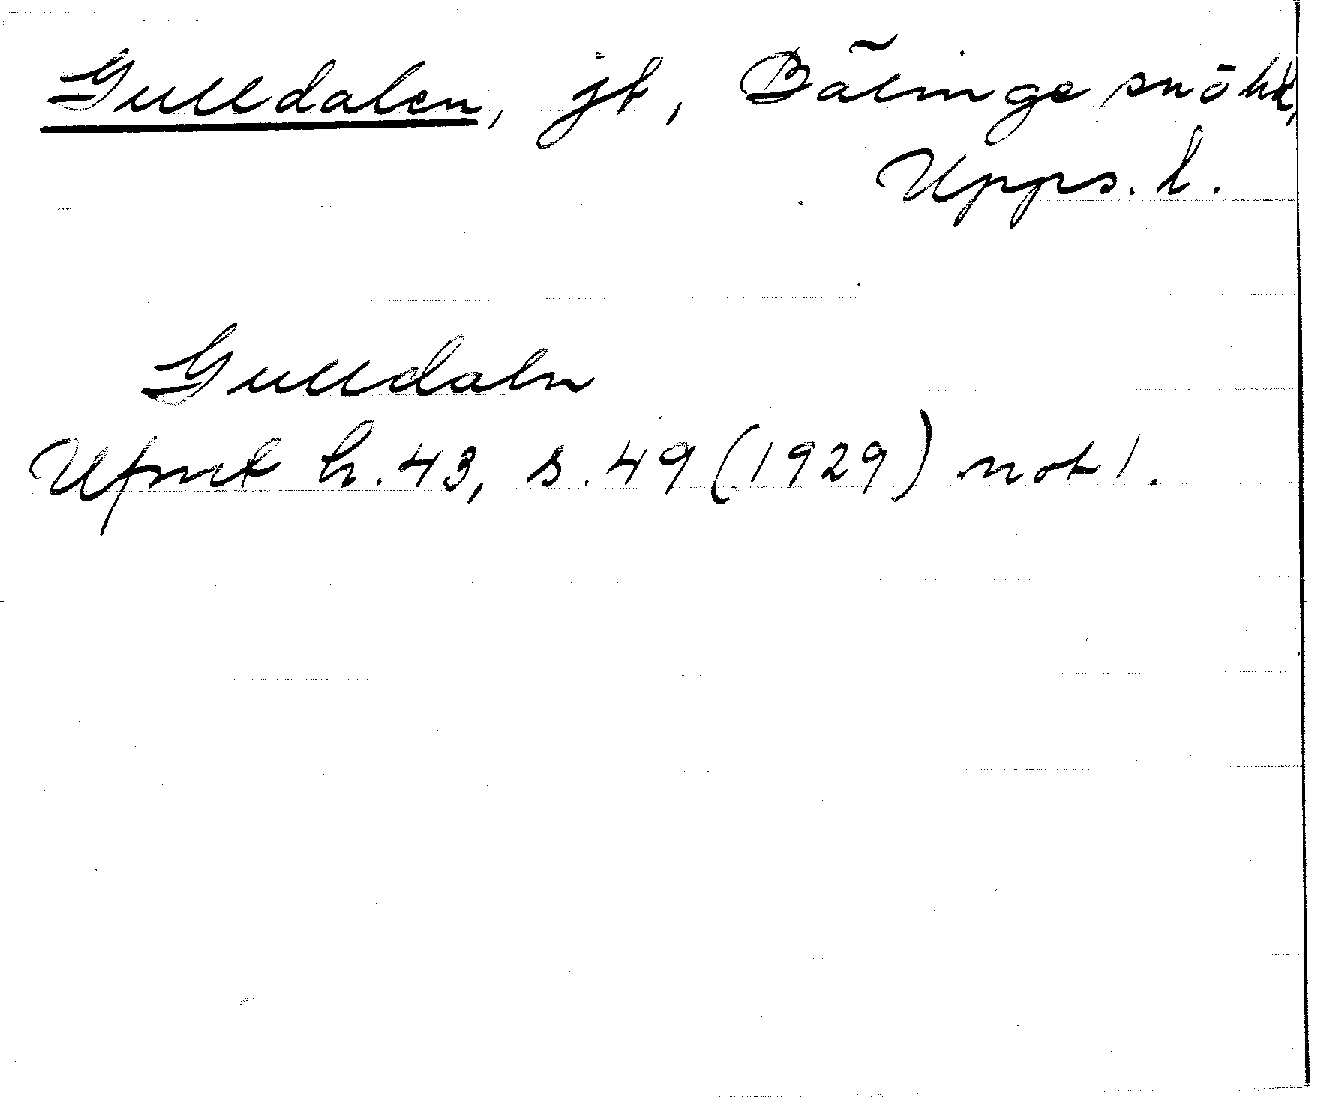 Gulldalen, jt, Bälinge sn ö hd,
Upps. l.
Gulldaln
Ufmt h. 43, s. 49 (1929) not 1.